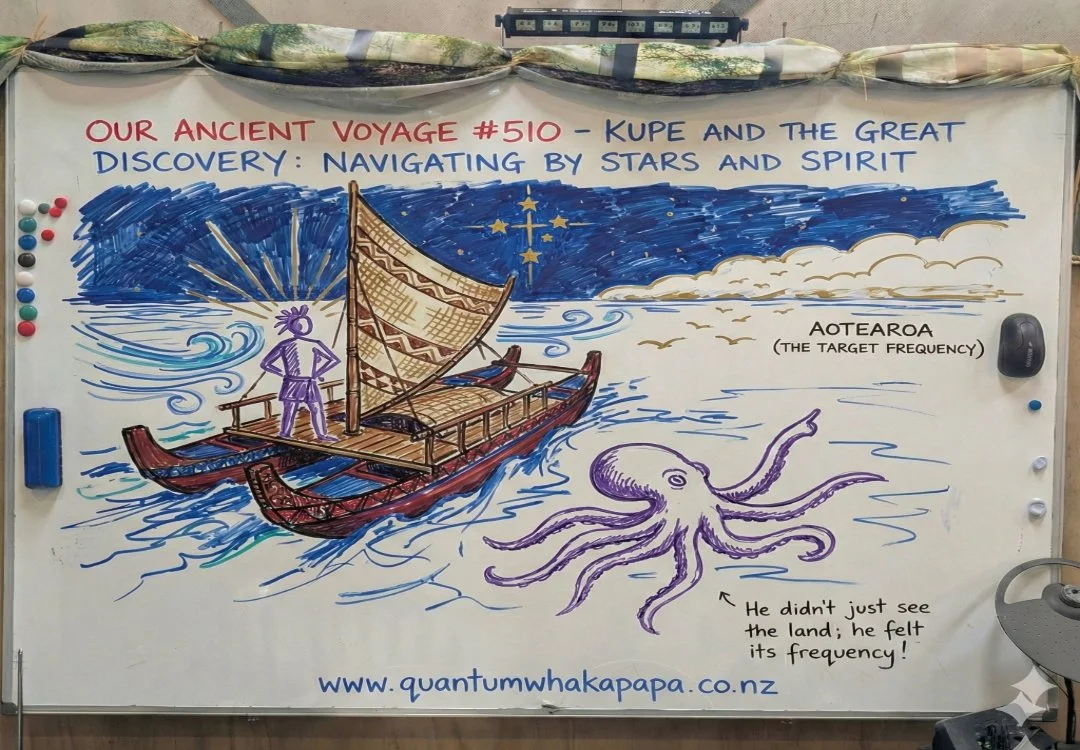 OUR ANCIENT VOYAGE #510 - KUPE AND THE GREAT
DISCOVERY: NAVIGATING BY STARS AND SPIRIT
AOTEAROA
(THE TARGET FREQUENCY)
He didn't just see
the land; he felt
its frequency!
www.quantumwhakapapa.co.nz